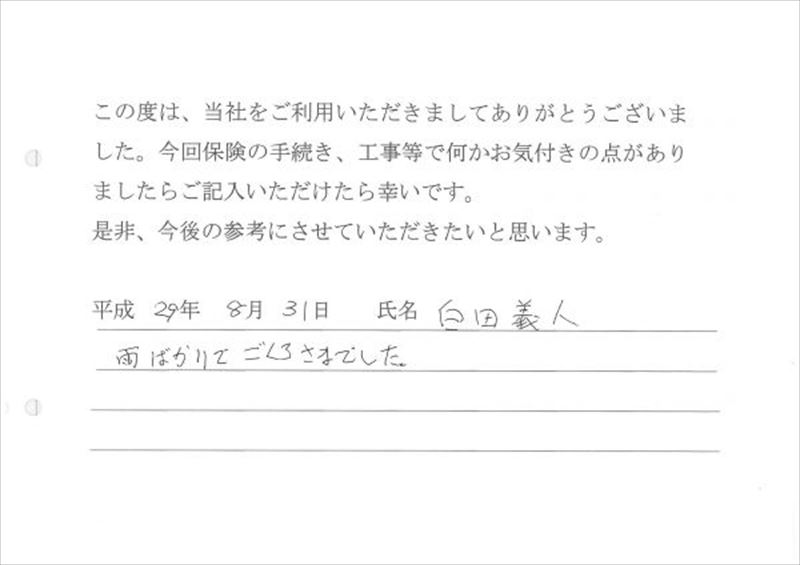 この度は、当社をご利用いただきましてありがとうございま
した。今回保険の手続き、工事等で何かお気付きの点があり
ましたらご記入いただけたら幸いです。
是非、今後の参考にさせていただきたいと思います。
平成 29年 8月 31日 氏名 白田義人
雨ばかりで ごくろさまでした。